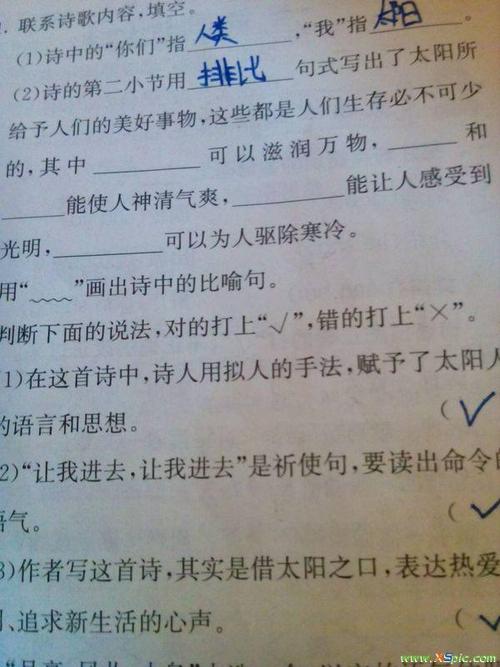 . 联系诗歌内容,填空。
(1)诗中的“你们”指 人类 ,“我”指 太阳 。
(2)诗的第二小节用 排比 句式写出了太阳所
给予人们的美好事物,这些都是人们生存必不可少
的,其中________可以滋润万物,______和
______能使人神清气爽,________能让人感受到
光明,________可以为人驱除寒冷。
用“﹏﹏”画出诗中的比喻句。
判断下面的说法,对的打上“√”,错的打上“×”。
1)在这首诗中,诗人用拟人的手法,赋予了太阳人
的语言和思想。 ( √
2)“让我进去,让我进去”是祈使句,要读出命令的
语气。 ( √
3)作者写这首诗,其实是借太阳之口,表达热爱
、追求新生活的心声。 ( √
www.XSpic.com